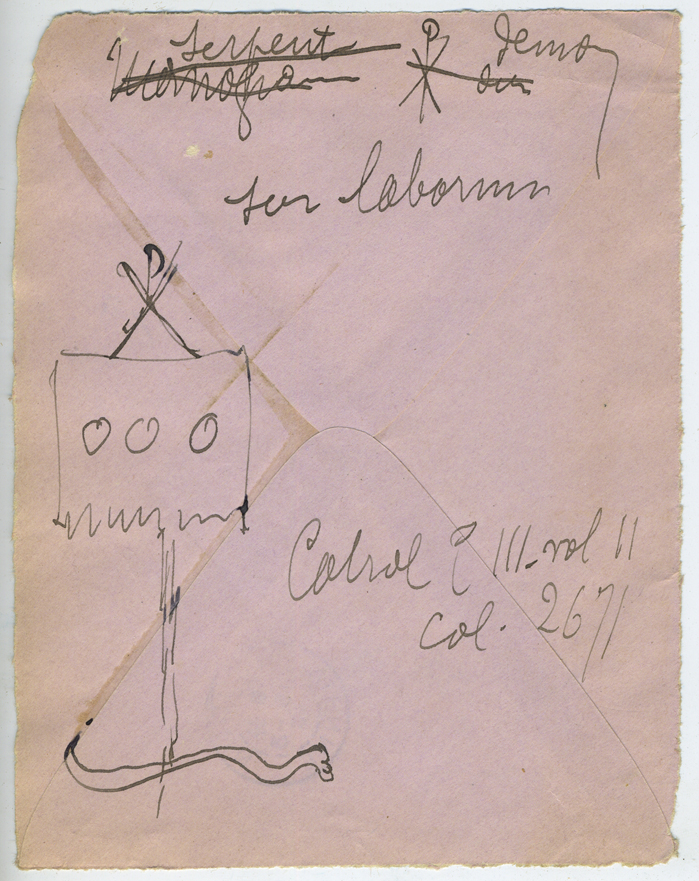 serpent demon
Monogramme ☧ sur
sur labarum
Cabrol t III. vol II
col. 2671